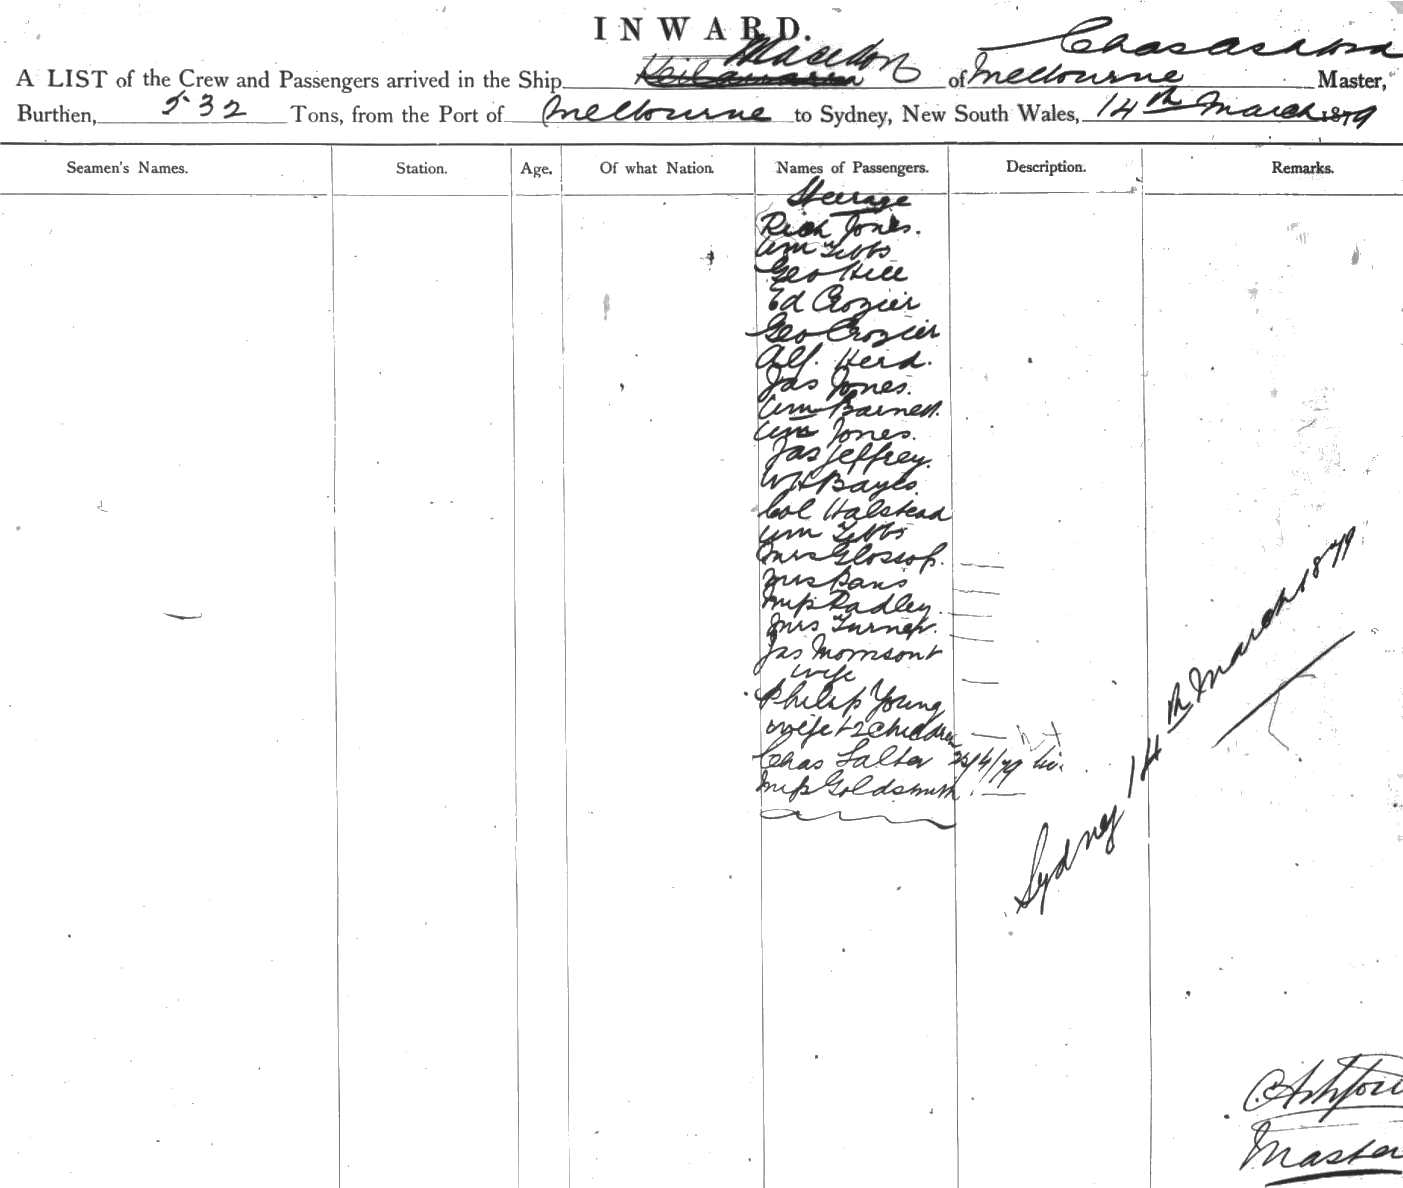 INWARD.
Macedon Chas Ashford
A LIST of the Crew and Passengers arrived in the Ship of Melbourne Master,
Burthen, 532 Tons, from the Port of Melbourne to Sydney, New South Wales, 14th March 1879
Seamen's Names. Station. Age. Of what Nation. Names of Passengers. Description. Remarks.
Steerage
Rich Jones.
Wm Tebbs
Geo Hill
Ed Crozier
Geo Crozier
Alf. Herd.
Jas Jones.
Wm Barnett.
Wm Jones.
Jas Jeffrey.
WH Bayes.
Col Halstead
Wm Tebbs
Mrs Glossop.
Mrs
Miss Radley.
Mrs Turner.
Jas Morrison +
wife
Philip Young
wife + 2 Children
Chas Salter 25/4/79
Miss Goldsmith
Sydney 14th March 1879
C Ashford
Master